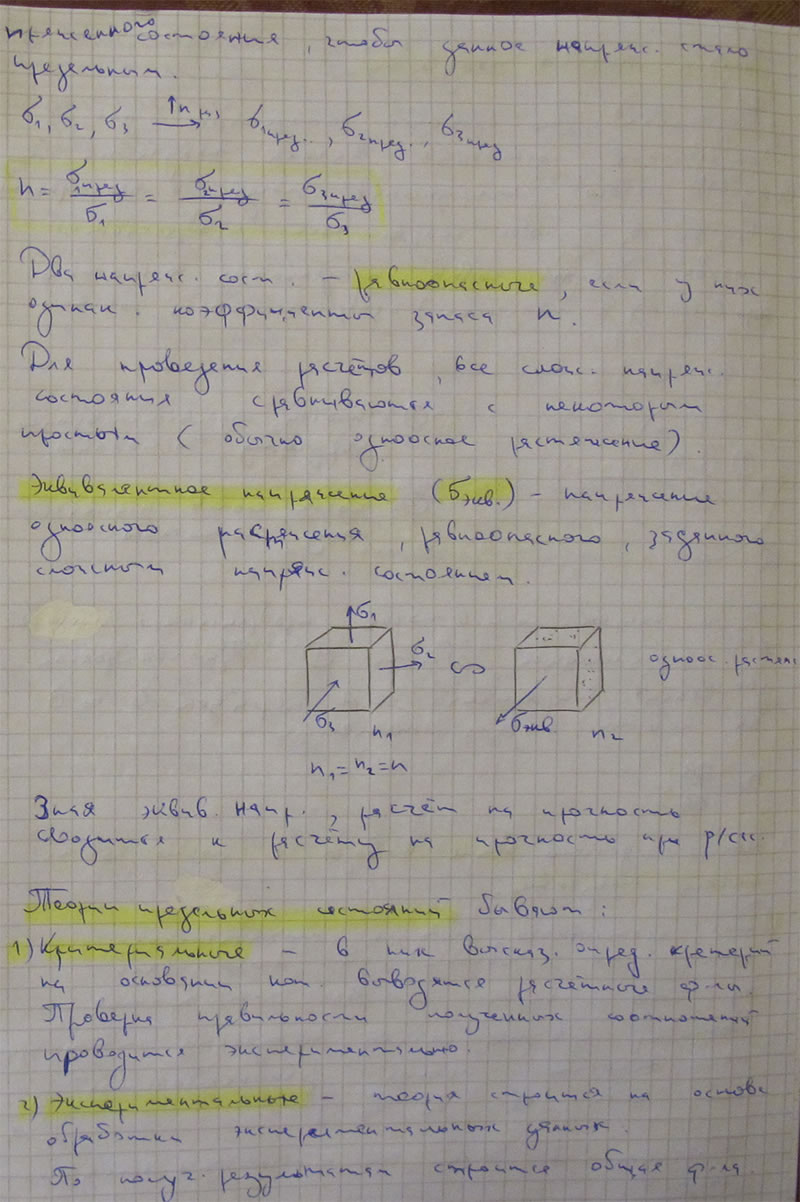 пряженного состояния, чтобы данное напряж. стало
предельным.
σ1, σ2, σ3 → σ1пред., σ2пред., σ3пред
n = σ1пред/σ1 = σ2пред/σ2 = σ3пред/σ3
Два напряж. сост. – равноопасные, если у них
одинак. коэффициенты запаса n.
Для проведения расчётов, все слож. напряж.
состояния сравниваются с некоторым
простым (обычно одноосное растяжение).
Эквивалентное напряжение (σэкв.) – напряжение
одноосного растяжения, равноопасного, заданного
сложным напряж. состоянием.
σ1
σ2
σ3
n1
σэкв
n2
одноос. растяж
n1 = n2 = n
Зная эквив. напр., расчёт на прочность
сводится к расчёту на прочность при р/сж.
Теории предельных состояний бывают:
1) Критериальные – в них высказ. опред. критерий
на основании кот. выводятся расчётные ф-лы.
Проверка правильности полученных соотношений
проводится экспериментально.
2) Экспериментальные – теория строится на основе
обработки экспериментальных данных.
По получ. результатам строится общая ф-ла.